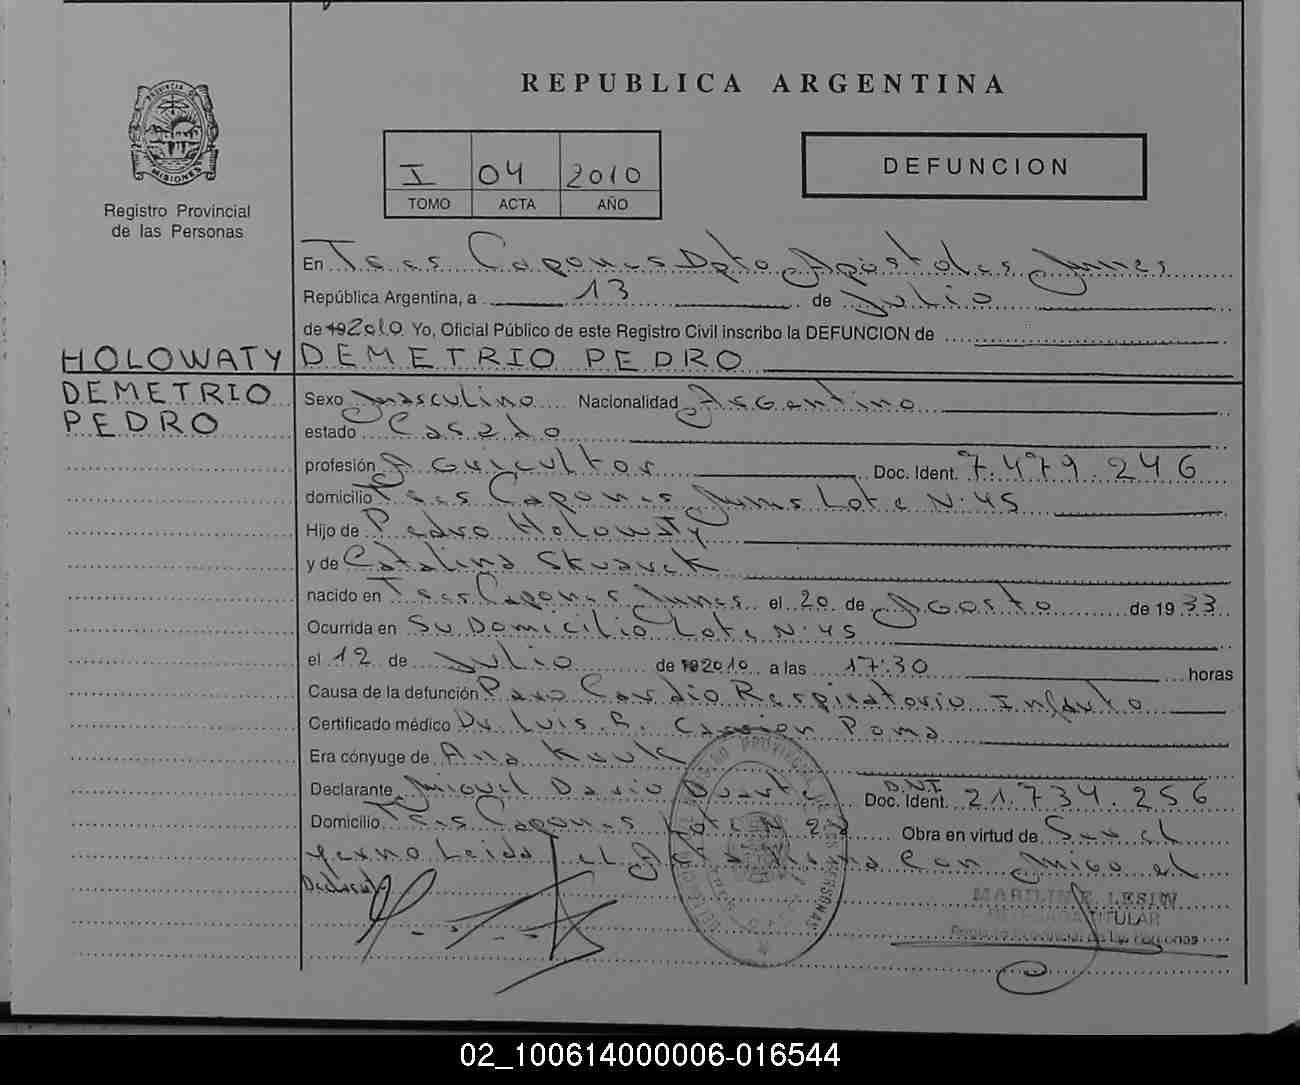 REPUBLICA ARGENTINA
PROVINCIA DE MISIONES
Registro Provincial
de las Personas
I 04 2010
TOMO ACTA AÑO
DEFUNCION
En Tres Capones Dpto Apóstoles Mnes
República Argentina, a 13 de Julio
de 192010 Yo, Oficial Público de este Registro Civil inscribo la DEFUNCION de
HOLOWATY DEMETRIO PEDRO
DEMETRIO
PEDRO
Sexo Masculino Nacionalidad Argentino
estado Casado
profesión Agricultor Doc. Ident. 7.479.246
domicilio Tres Capones Mnes Lote N. 45
Hijo de Pedro Holowaty
y de Catalina
nacido en Tres Capones Mnes el 20 de Agosto de 1933
Ocurrida en Su Domicilio Lote N. 45
el 12 de Julio de 192010 a las 17:30 horas
Causa de la defunción Paro Cardio Respiratorio Infarto
Certificado médico Dr Luis R. Carrion Poma
Era cónyuge de Ana
Declarante Miguel Dario Duarte D.N.I
Doc. Ident. 21.734.256
Domicilio Tres Capones Lote N Obra en virtud de Ser el
yerno Leida el Acta firma Con migo el
Declarante
MARILIN E. LESIN
DELEGADA TITULAR
Registro Provincial de las Personas
02_100614000006-016544